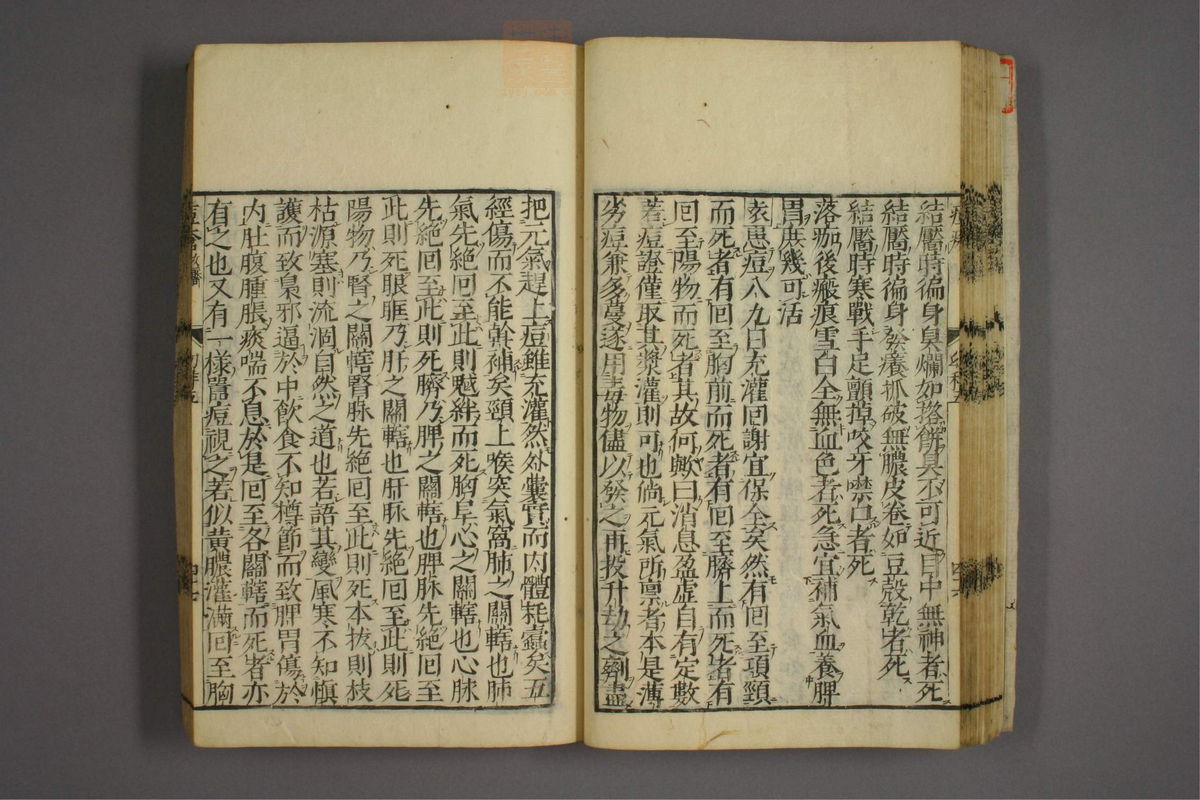 結靨時徧身臭爛如搭餅臭不可近目中無神者死
結靨時徧身發癢抓破無膿皮卷如豆殼乾者死
結靨時寒戰手足顫掉咬牙噤口者死
落痂後瘢痕雪白全無血色者死急宜補氣血養脾
胃庶幾可活
痘八九日充灌回謝宜保全矣然有回至項頸
而死者有回至胸前而死者有回至臍上而死者有
回至陽物而死者其故何歟曰消息盈虛自有定數
若痘證僅取其漿灌則可也倘元氣所禀者本是薄
劣痘兼多蔓遂用毒物儘以發之再投升劫之劑盡
把元氣趕上痘雖充灌然外囊實而內體耗蠹矣五
經傷而不能斡補矣頸上喉突氣窩肺之關轄也肺
氣先絕回至此則絆而死胸阜心之關轄也心脉
先絕回至此則死臍乃脾之關轄也脾脉先絕回至
此則死眼眶乃肝之關轄也肝脉先絕回至此則死
陽物乃腎之關轄腎脉先絕回至此則死本拔則枝
枯源塞則流涸自然之道也若語其變風寒不知慎
護而致梟邪逼於中飲食不知樽節而致脾胃傷於
內肚腹腫脹痰喘不息於是回至各關轄而死者亦
有之也又有一樣痘視之若似黃膿灌滿回至胸